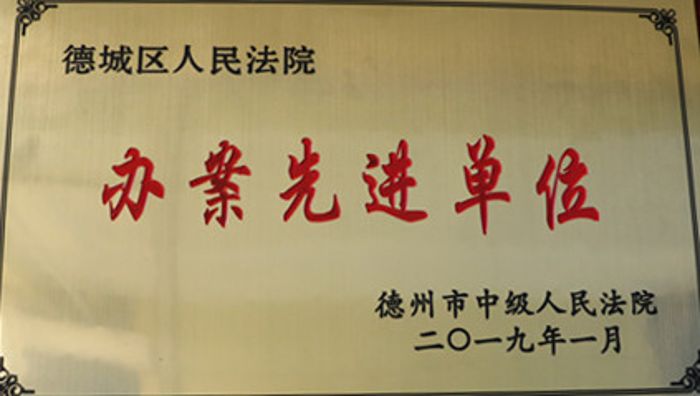 德城区人民法院
办案先进单位
德州市中级人民法院
二〇一九年一月